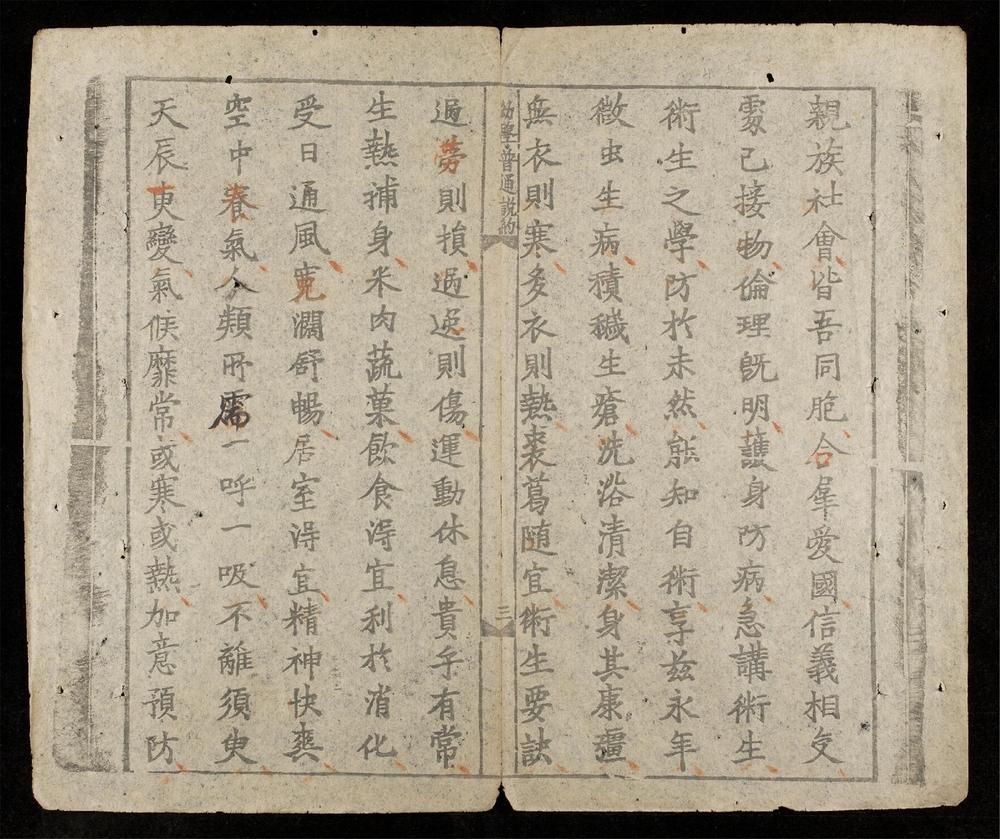 親族社會皆吾同胞合羣愛國信義相交
處己接物倫理既明護身防病急講術生
術生之學防於未然能知自術享兹永年
微虫生病積穢生瘡洗浴清潔身其康疆
無衣則寒多衣則熱裘葛随宜術生要訣
幼學普通説約
三
過勞則損過逸則傷運動休息貴乎有常
生熱補身米肉蔬菓飲食得宜利於消化
受日通風寛濶舒暢居室得宜精神快爽
空中養氣人類所需一呼一吸不離須臾
天辰更變氣候靡常或寒或熱加意預防